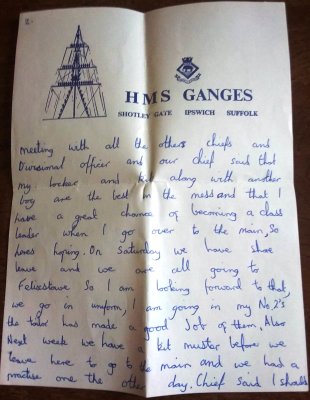 2.
HMS GANGES
SHOTLEY GATE IPSWICH SUFFOLK
meeting with all the others chiefs and
Divisional officer and our chief said that
my locker and kit along with another
boy are the best in the mess and that I
have a great chance of becoming a class
leader when I go over to the main, So
heres hoping. On Saturday we have shore
leave and we are all going to
Felixstowe So I am looking forward to that,
we go in uniform, I am going in my No.2's
the tailor has made a good Job of them. Also
Next week we have a kit muster before we
leave here to go to the main and we had a
practise one the other day. Chief said I should